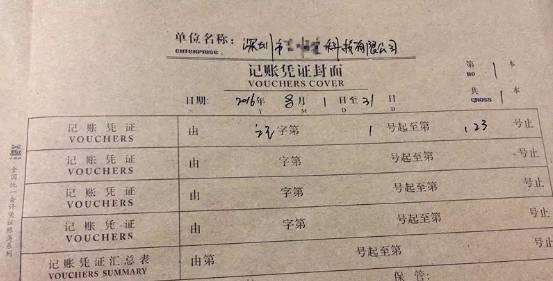 单位名称: 深圳市 科技有限公司
ENTERPRISE
记账凭证封面
VOUCHERS COVER
第 1 本
NO
共 1 本
GROSS
日期: 2016年 8月 1日至 31日
Y M D D
记账凭证 由 记字第 1 号起至第 123 号止
VOUCHERS
记账凭证 由 字第 号起至第 号止
VOUCHERS
记账凭证 由 字第 号起至第 号止
VOUCHERS
记账凭证 由 字第 号起至第 号止
VOUCHERS
记账凭证汇总表 由第 号起至第 号止
VOUCHERS SUMMARY
保管:
全国统一会计凭证账簿系列